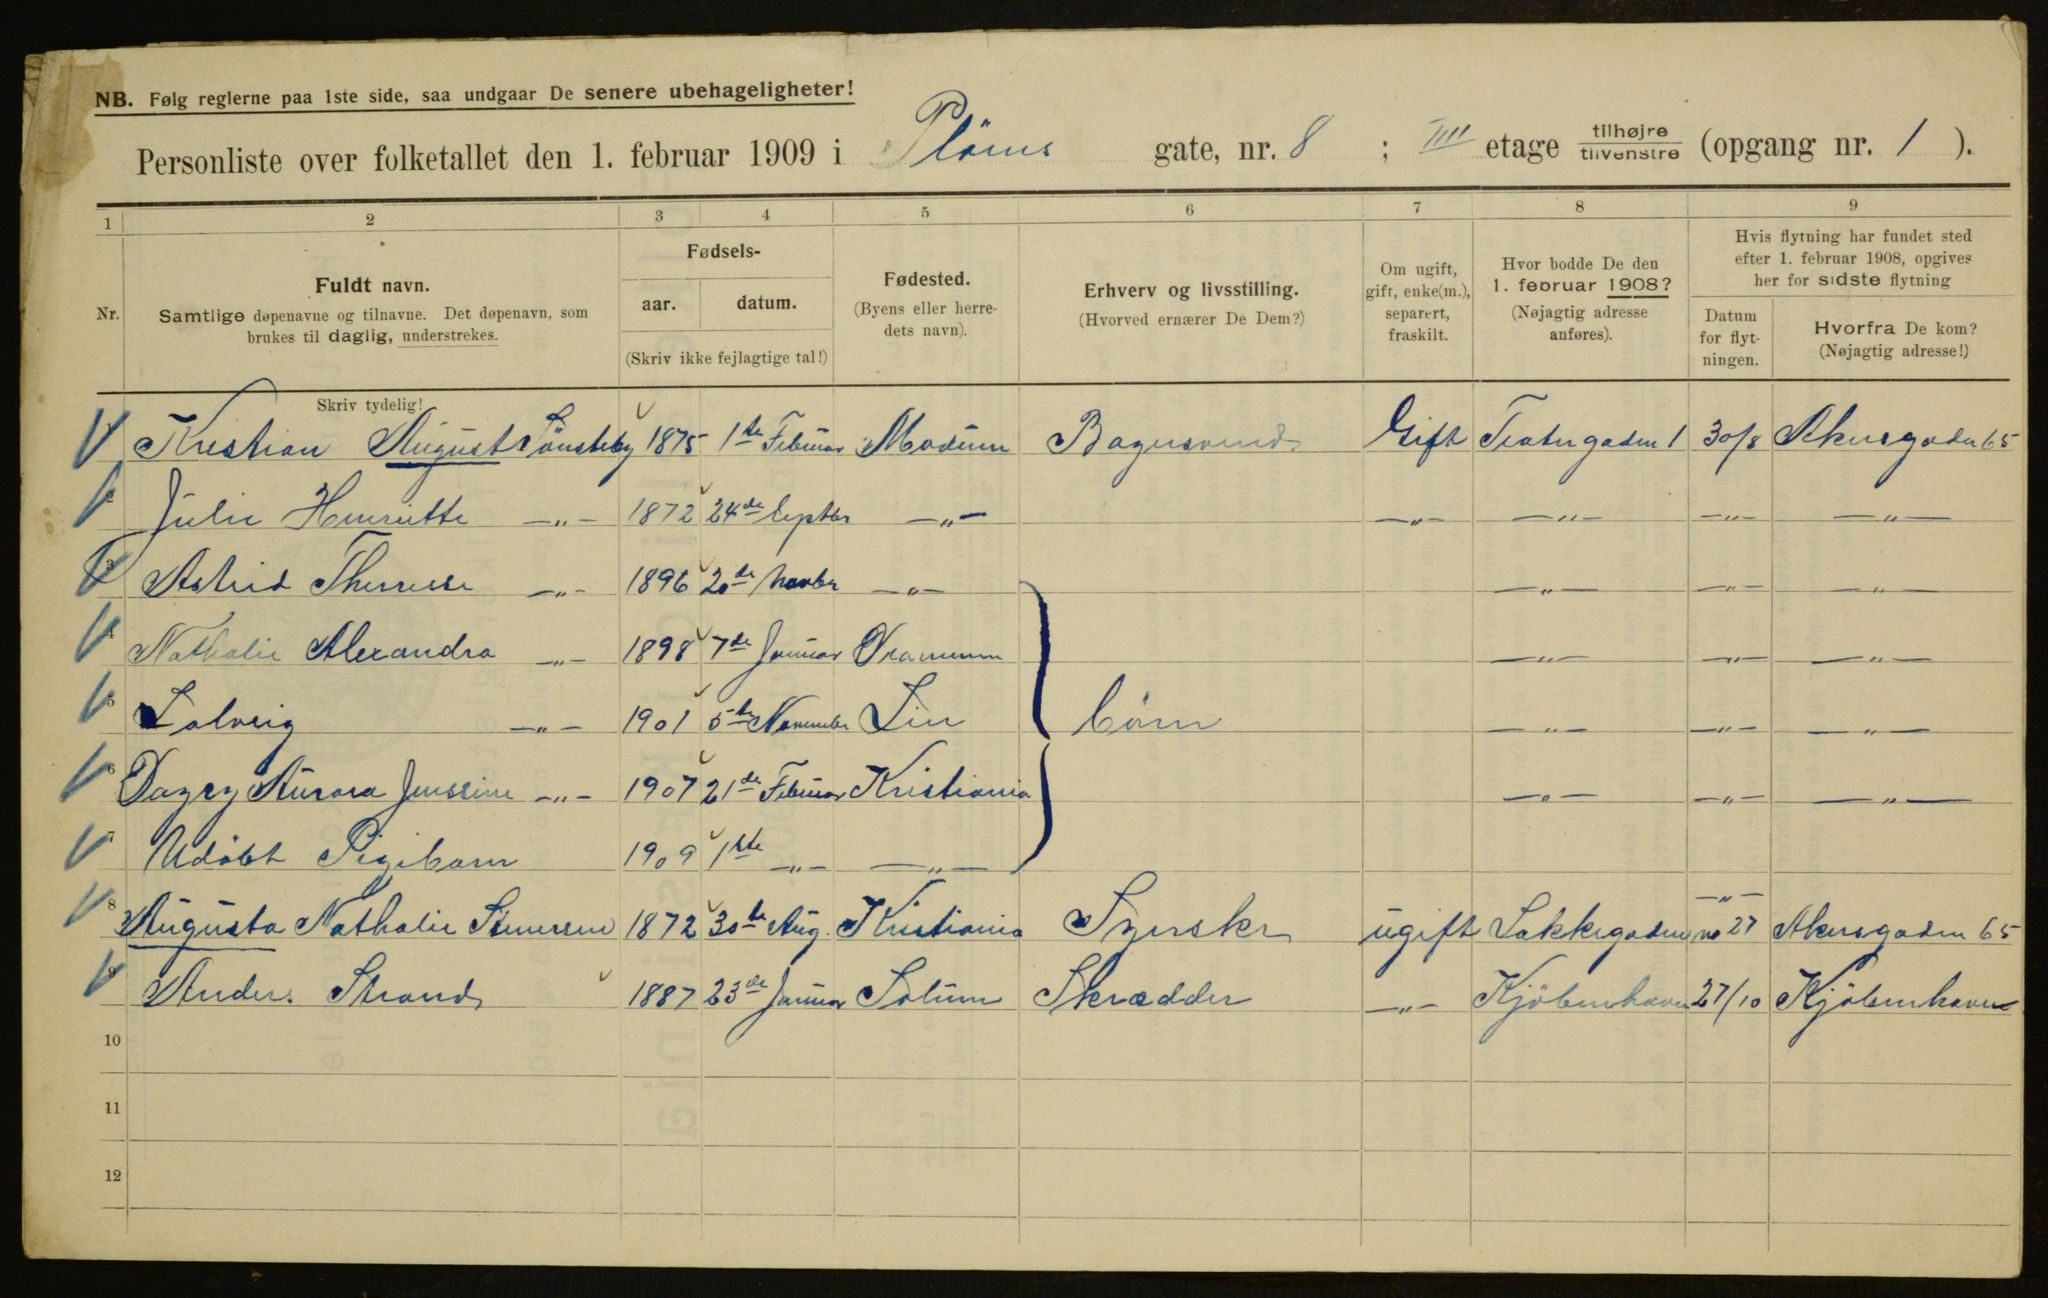 NB. Følg reglerne paa 1ste side, saa undgaar De senere ubehageligheter!
Personliste over folketallet den 1. februar 1909 i Plöens gate, nr. 8 ; III etage tilhøjre / tilvenstre (opgang nr. 1 ).
1 2 3 4 5 6 7 8 9
Nr.
Fuldt navn.
Samtlige døpenavne og tilnavne. Det døpenavn, som
brukes til daglig, understrekes.
Skriv tydelig!
Fødsels-
aar. datum.
(Skriv ikke fejlagtige tal!)
Fødested.
(Byens eller herre-
dets navn).
Erhverv og livsstilling.
(Hvorved ernærer De Dem?)
Om ugift,
gift, enke(m.),
separert,
fraskilt.
Hvor bodde De den
1. februar 1908?
(Nøjagtig adresse
anføres).
Hvis flytning har fundet sted
efter 1. februar 1908, opgives
her for sidste flytning
Datum
for flyt-
ningen.
Hvorfra De kom?
(Nøjagtig adresse!)
Kristian August Sönsteby 1875 1te Februar Modum Gift Teatergaden 1 30/8 Akersgaden 65
2 Julie Henriette —„— 1872 24de Septbr —„— —„— —„— —„— —„—
3 Astrid Therese —„— 1896 20de Novbr —„— —„— —„— —„—
4 Nathalie Alexandra —„— 1898 7de Januar Drammen —„— —„— —„—
5 Solveig —„— 1901 5te November Lier Börn —„— —„— —„—
6 Dagny Aurora Jenssine —„— 1907 21de Februar Kristiania —„— —„— —„—
7 Udöbt Pigebarn 1909 1ste —„— —„— —„—
8 Augusta Nathalie 1872 30te Aug. Kristiania Syerske ugift Lakkegaden no 27 Akersgaden 65
9 Anders Strand 1887 23de Januar Solum Skrædder —„— Kjöbenhavn 27/10 Kjöbenhavn
10
11
12